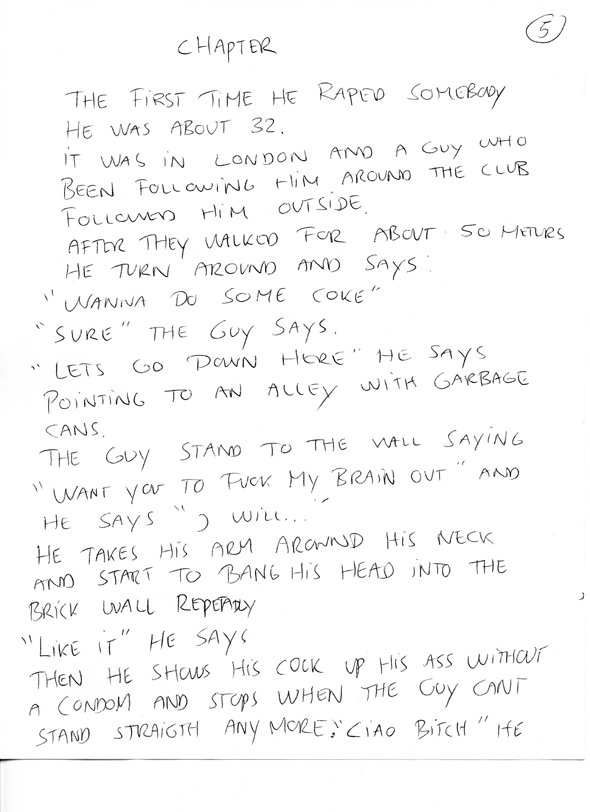 5
CHAPTER
THE FIRST TIME HE RAPED SOMEBODY
HE WAS ABOUT 32.
IT WAS IN LONDON AND A GUY WHO
BEEN FOLLOWING HIM AROUND THE CLUB
FOLLOWED HIM OUTSIDE.
AFTER THEY WALKED FOR ABOUT 50 METURS
HE TURN AROUND AND SAYS:
"WANNA DO SOME COKE"
"SURE" THE GUY SAYS.
"LETS GO DOWN HERE" HE SAYS
POINTING TO AN ALLEY WITH GARBAGE
CANS.
THE GUY STAND TO THE WALL SAYING
"WANT YOU TO FUCK MY BRAIN OUT" AND
HE SAYS "I WILL..."
HE TAKES HIS ARM AROUND HIS NECK
AND START TO BANG HIS HEAD INTO THE
BRICK WALL
"LIKE IT" HE SAYS
THEN HE SHOWS HIS COCK UP HIS ASS WITHOUT
A CONDOM AND STOPS WHEN THE GUY CANT
STAND STRAIGTH ANY MORE. "CIAO BITCH" HE